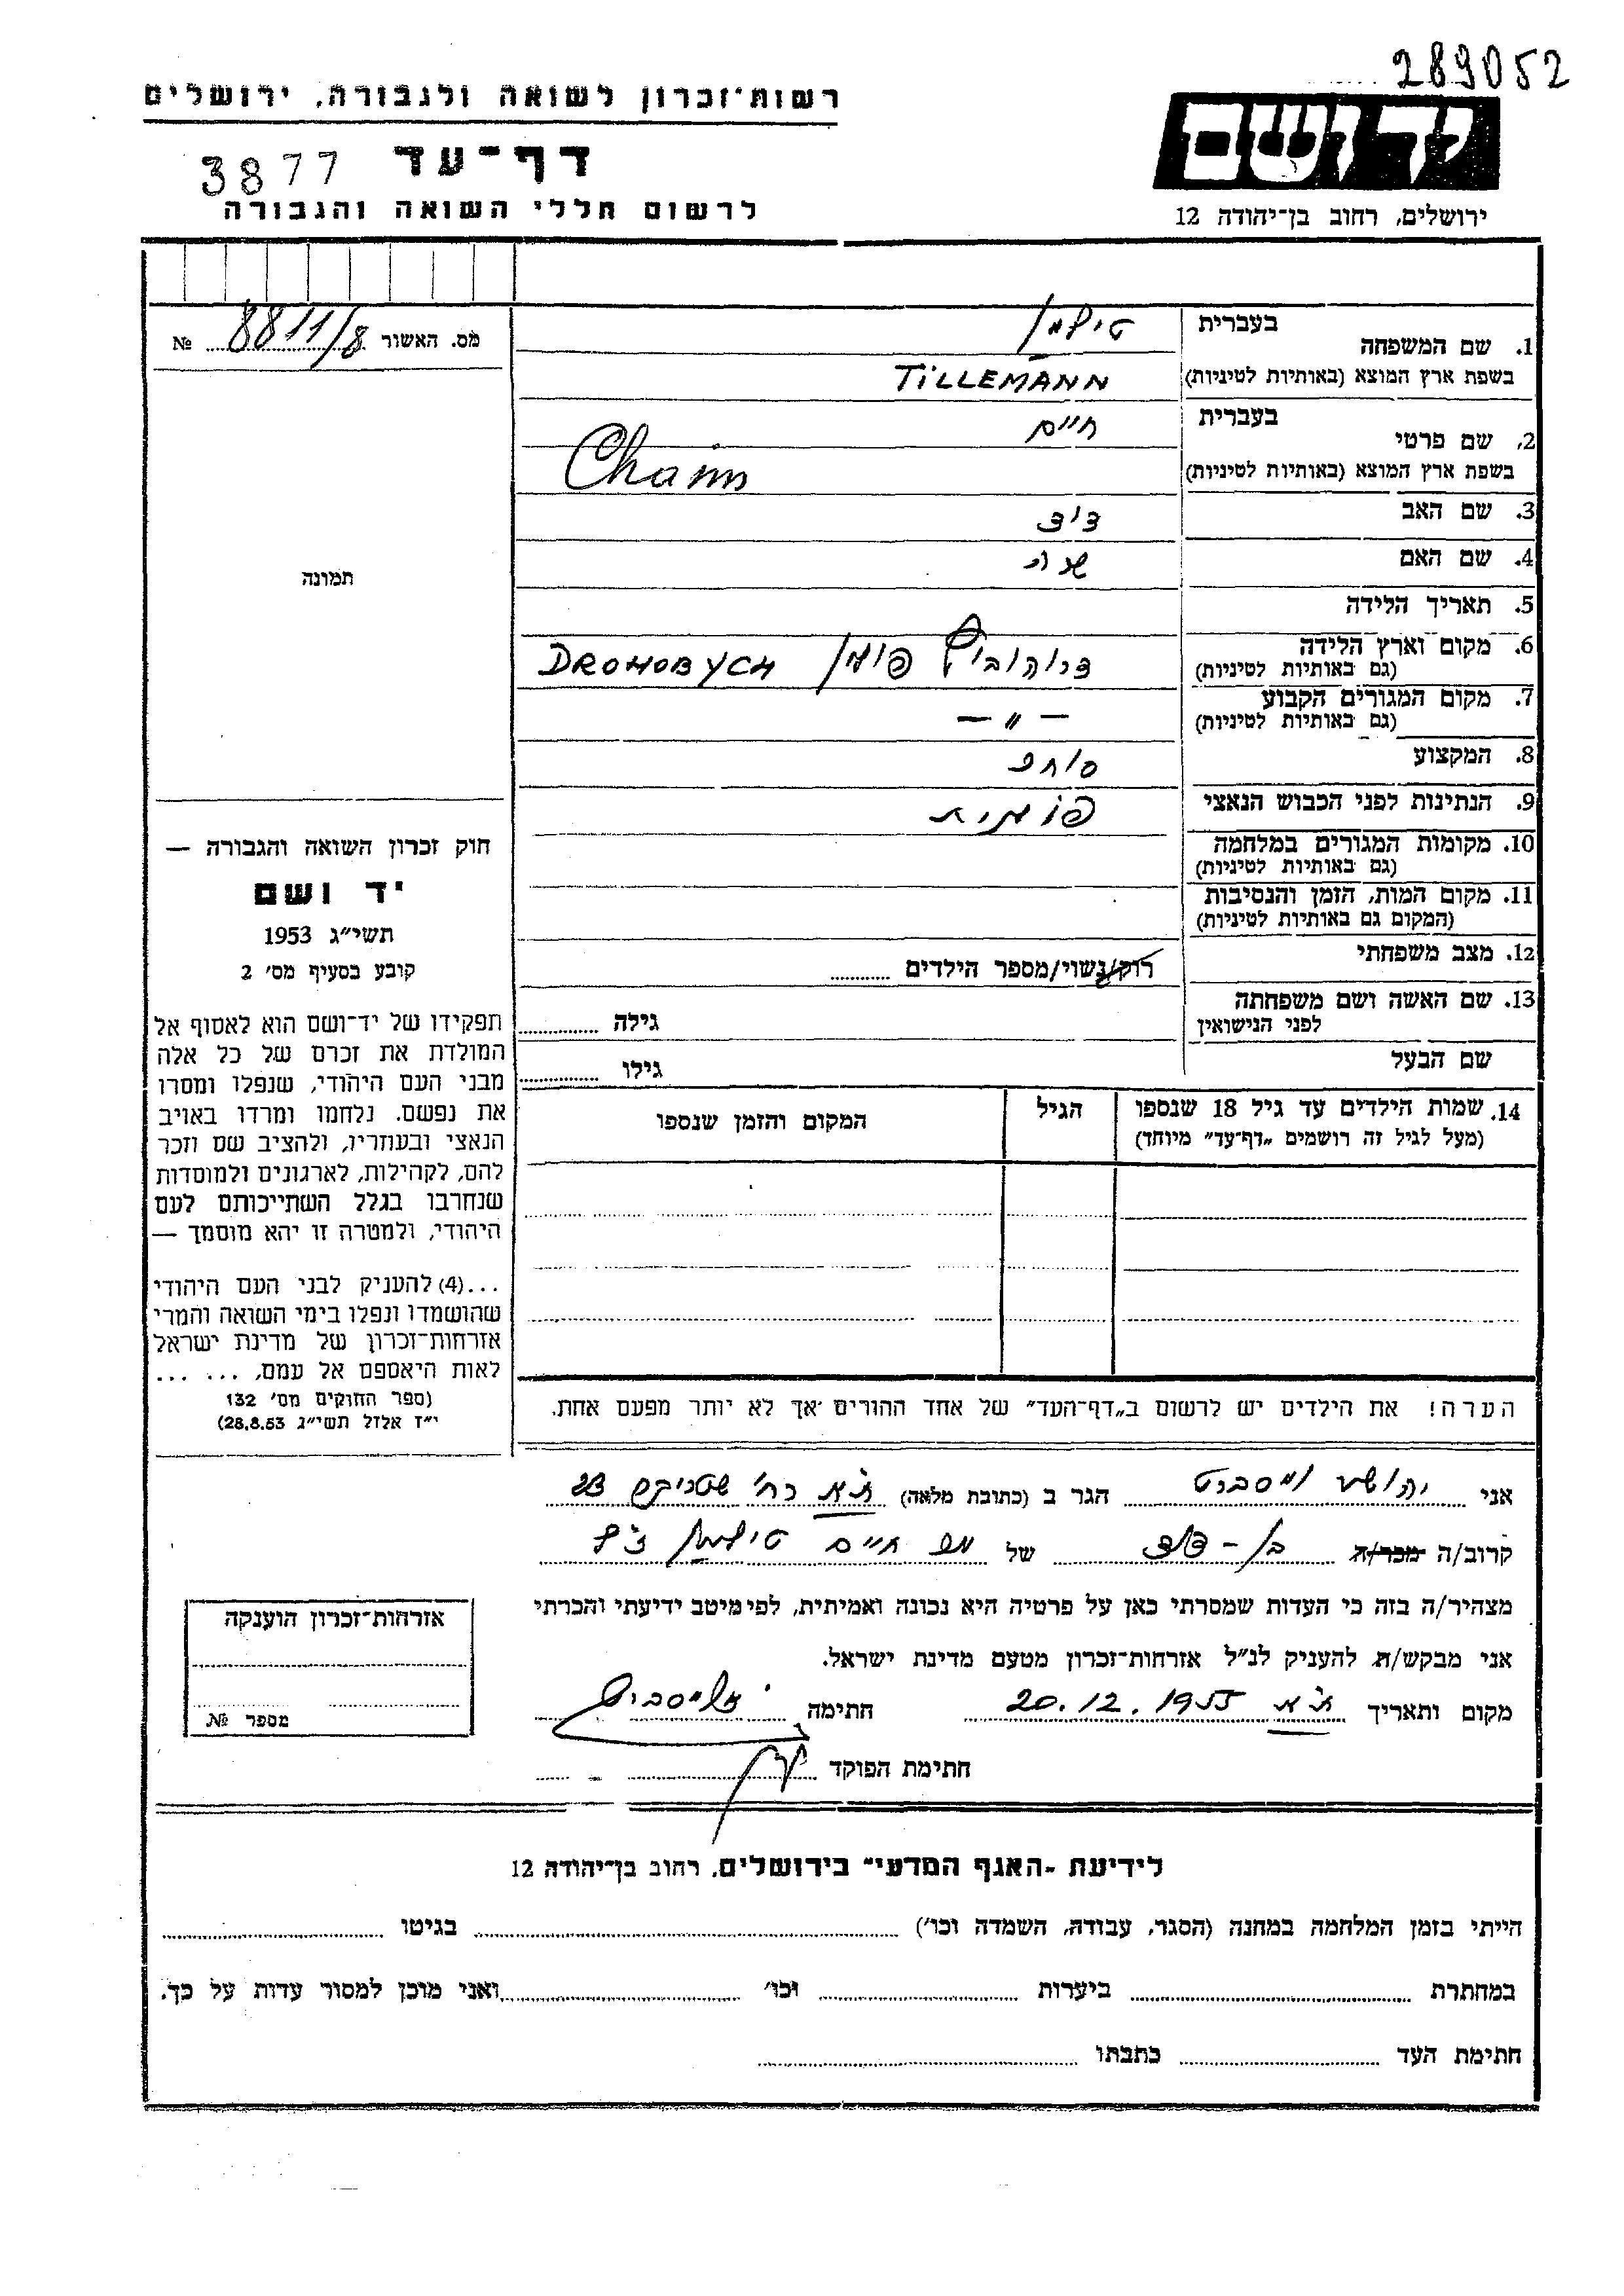 289052
רשות־זכרון לשואה ולגבורה, ירושלים
ידושם
דף־עד 3877
לרשום חללי השואה והגבורה
ירושלים, רחוב בן־יהודה 12
מס. האשור 8811/8 №
1. שם המשפחה בעברית טילמן
בשפת ארץ המוצא (באותיות לטיניות) TILLEMANN
2. שם פרטי בעברית חיים
בשפת ארץ המוצא (באותיות לטיניות) Chaim
3. שם האב דוד
4. שם האם שרה
תמונה
5. תאריך הלידה
6. מקום וארץ הלידה דרוהוביטש פולין DROHOBYCH
(גם באותיות לטיניות)
7. מקום המגורים הקבוע — " —
(גם באותיות לטיניות)
8. המקצוע סוחר
9. הנתינות לפני הכבוש הנאצי פולנית
10. מקומות המגורים במלחמה
(גם באותיות לטיניות)
11. מקום המות, הזמן והנסיבות
(המקום גם באותיות לטיניות)
12. מצב משפחתי
רוק/נשוי/מספר הילדים
13. שם האשה ושם משפחתה
לפני הנישואין
גילה
שם הבעל
גילו
14. שמות הילדים עד גיל 18 שנספו
(מעל לגיל זה רושמים „דף־עד" מיוחד)
הגיל
המקום והזמן שנספו
חוק זכרון השואה והגבורה —
יד ושם
תשי"ג 1953
קובע בסעיף מס׳ 2
תפקידו של יד־ושם הוא לאסוף אל
המולדת את זכרם של כל אלה
מבני העם היהודי, שנפלו ומסרו
את נפשם. נלחמו ומרדו באויב
הנאצי ובעוזריו, ולהציב שם וזכר
להם, לקהילות, לארגונים ולמוסדות
שנחרבו בגלל השתייכותם לעם
היהודי, ולמטרה זו יהא מוסמך —
...(4) להעניק לבני העם היהודי
שהושמדו ונפלו בימי השואה והמרי
אזרחות־זכרון של מדינת ישראל
לאות היאספם אל עמם, ... ...
(ספר החוקים מס׳ 132
י"ז אלול תשי"ג 28.8.53)
הערה! את הילדים יש לרשום ב„דף־העד" של אחד ההורים אך לא יותר מפעם אחת.
אני יהושע הגר ב (כתובת מלאה) ת"א רח׳
קרוב/ה מכר/ה בן-דוד של מר חיים טילמן ז"ל
מצהיר/ה בזה כי העדות שמסרתי כאן על פרטיה היא נכונה ואמיתית, לפי מיטב ידיעתי והכרתי
אני מבקש/ת להעניק לנ"ל אזרחות־זכרון מטעם מדינת ישראל.
מקום ותאריך ת"א 20.12.1955 חתימה
חתימת הפוקד
אזרחות־זכרון הוענקה
מספר №
לידיעת -האגף המדעי" בירושלים, רחוב בן־יהודה 12
הייתי בזמן המלחמה במחנה (הסגר, עבודה, השמדה וכו׳) בגיטו
במחתרת ביערות וכו׳ ואני מוכן למסור עדות על כך.
חתימת העד כתבתו